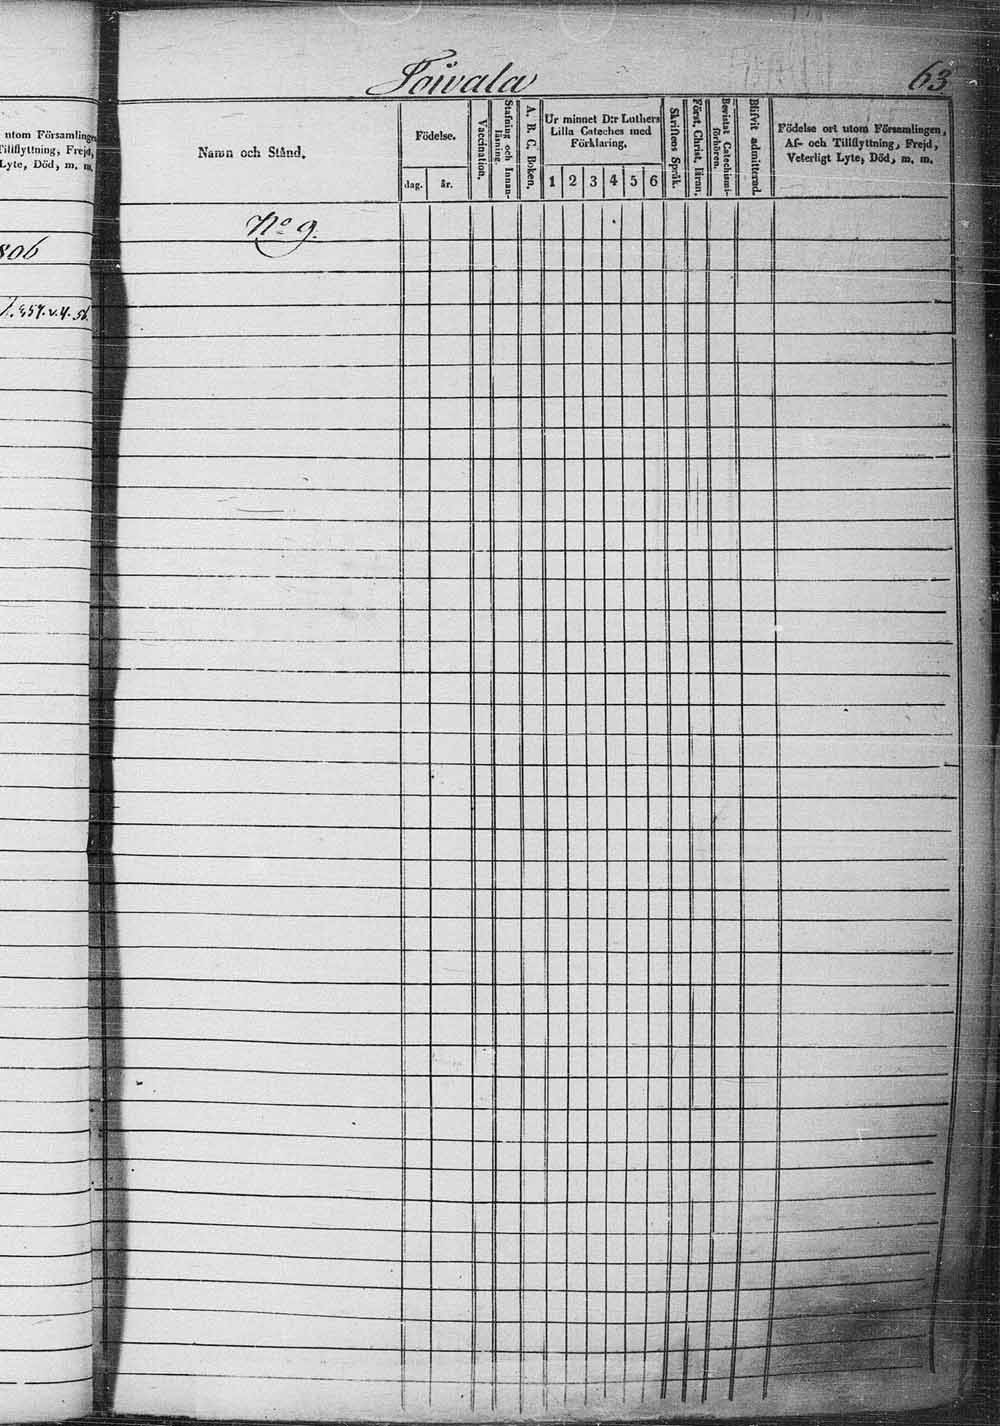 Toivala
63
utom Församlingen
Tillflyttning, Frejd,
Lyte, Död, m. m.
Namn och Stånd.
Födelse.
dag. år.
Vaccination.
Stafning och Innan-
läsning.
A. B. C. Boken.
Ur minnet D:r Luthers
Lilla Cateches med
Förklaring.
1 2 3 4 5 6
Skriftens Språk.
Först. Christ. läran.
Bevistat Catechismi-
förhören.
Blifvit admitterad.
Födelse ort utom Församlingen,
Af- och Tillflyttning, Frejd,
Veterligt Lyte, Död, m. m.
No 9.
806